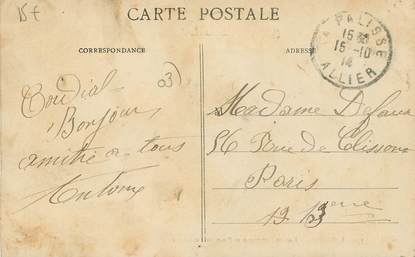 15 f
CARTE POSTALE
CORRESPONDANCE
ADRESSE
LA PALISSE
15 30
15-10
14
ALLIER
03)
Cordial
Bonjour
amitié a tous
Antony
Madame Defaux
56 Rue de Clisson
Paris
13 eme